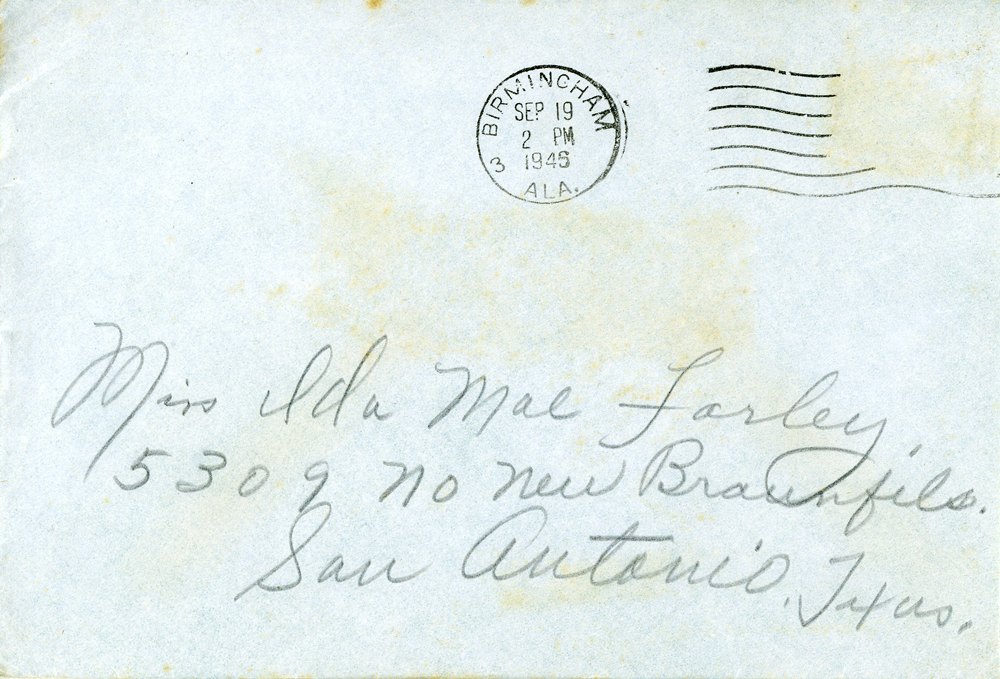 BIRMINGHAM
SEP 19
2 PM
1945
3
ALA.
Miss Ida Mae Farley,
5309 No New Braunfils.
San Antonio, Texas.